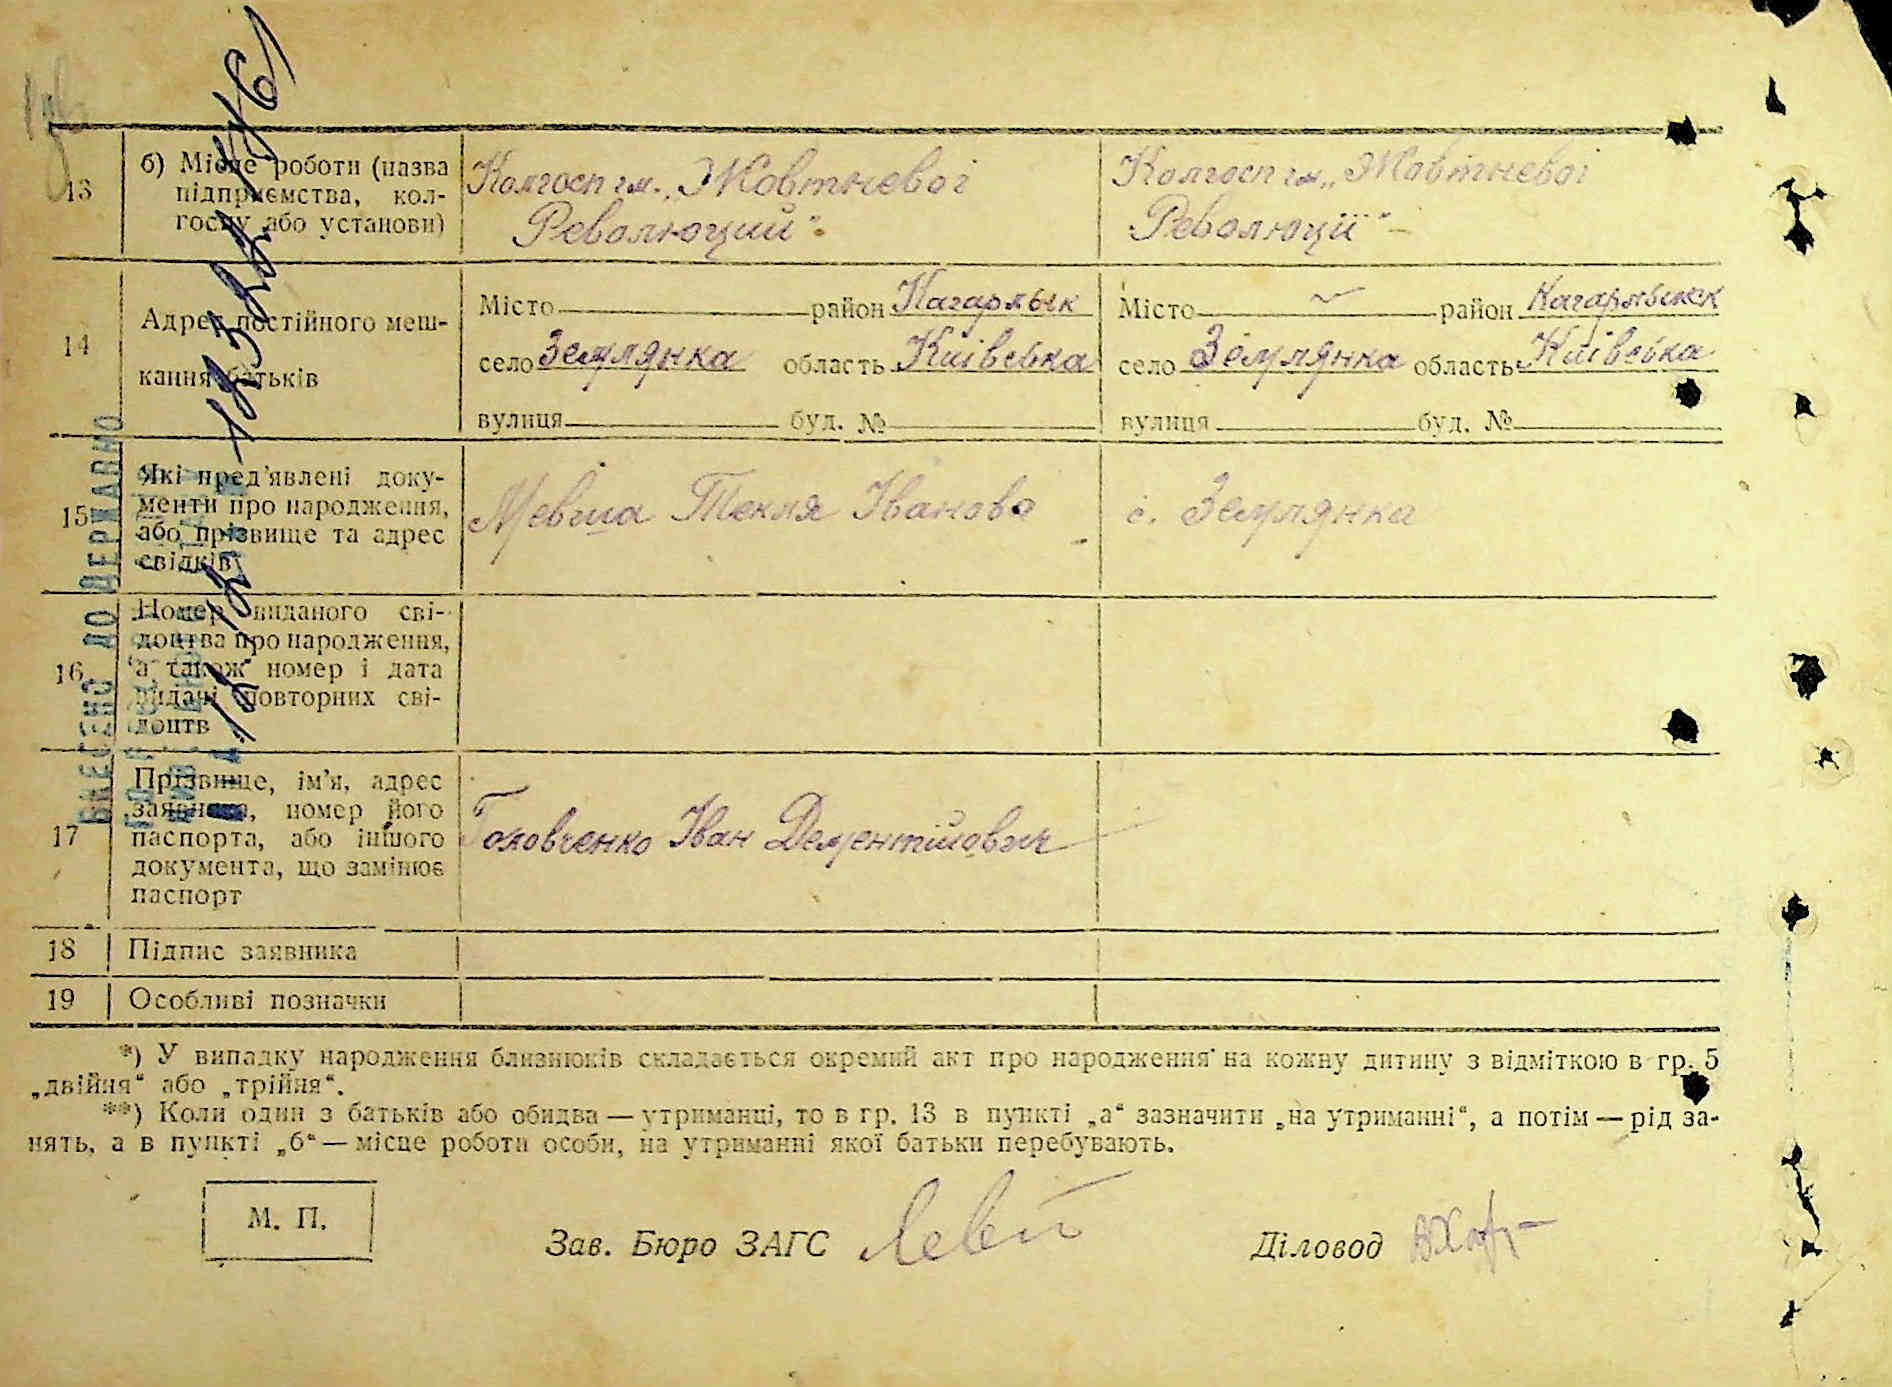 13 б) Місце роботи (назва підприємства, колгоспу або установи)
Колгосп ім. „Жовтневої
Революций“.
Колгосп ім. „Жовтневої
Революції“
14 Адреса постійного мешкання батьків
Місто район Кагарлык
село Землянка область Київська
вулиця буд. №
Місто район Кагарлыкск
село Землянка область Київська
вулиця буд. №
15 Які пред'явлені доку-
менти про народження,
або прізвище та адрес
свідків
Текля Іванова
с. Землянка
16 Номер виданого сві-
доцтва про народження,
а також номер і дата
видачі повторних сві-
доцтв
17 Прізвище, ім'я, адрес
заявника, номер його
паспорта, або іншого
документа, що замінює
паспорт
Головченко Іван Дементійович
18 Підпис заявника
19 Особливі позначки
ВНЕСЕНО ДО ДЕРЖАВНО
*) У випадку народження близнюків складається окремий акт про народження на кожну дитину з відміткою в гр. 5
„двійня“ або „трійня“.
**) Коли один з батьків або обидва — утриманці, то в гр. 13 в пункті „а“ зазначити „на утриманні“, а потім — рід за-
нять, а в пункті „б“ — місце роботи особи, на утриманні якої батьки перебувають.
М. П.
Зав. Бюро ЗАГС
Діловод